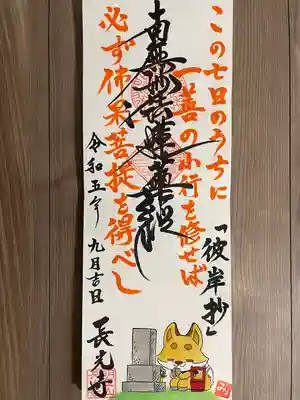 この七日のうちに
一善の小行を修せば
「彼岸抄」
南無妙法蓮華経
必ず佛果菩提を得べし
令和五年 九月吉日
長元寺